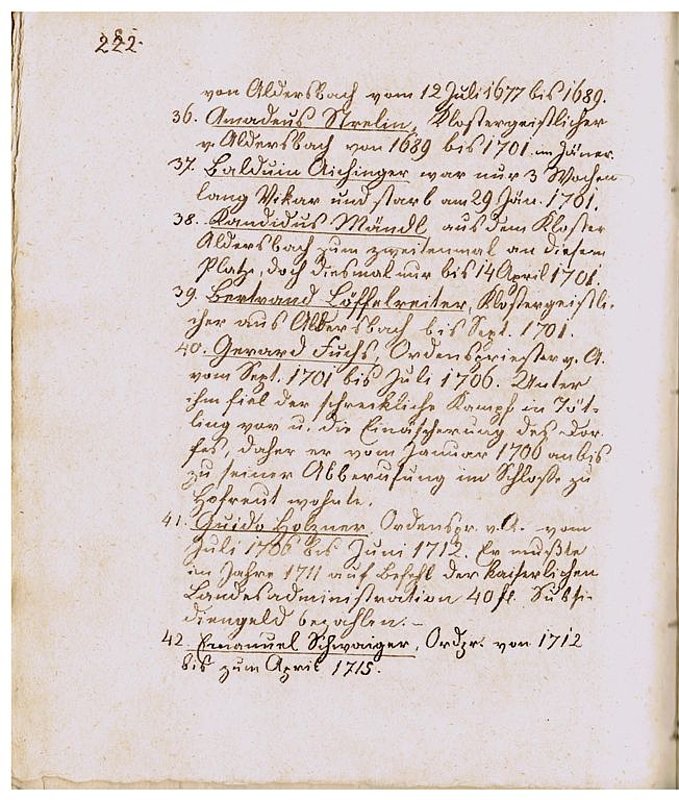 222.
von Aldersbach vom 12 Juli 1677 bis 1689.
36. Amadeus Strelin, Klostergeistlicher
v. Aldersbach von 1689 bis 1701 im Jäner.
37. Balduin Aichinger war nur 3 Wochen
lang Vikar und starb am 29 Jän. 1701.
38. Kandidus Mändl aus dem Kloster
Aldersbach zum zweitenmal an diesem
Platze, doch diesmal nur bis 14 April 1701.
39. Bertrand Löffelreiter, Klostergeistli-
cher aus Aldersbach bis Sept. 1701.
40. Gerard Fuchs, Ordenspriester v. A.
vom Sept. 1701 bis Juli 1706. Unter
ihm fiel der schreckliche Kampf in Jöt-
ling vor u. die Einäscherung des Dor-
fes, daher er vom Januar 1706 an bis
zu seiner Abberufung im Schloße zu
Hofreut wohnte.
41. Guido Holzner, Ordenspr. v. A. vom
Juli 1706 bis Juni 1712. Er mußte
im Jahre 1711 auf Befehl der kaiserlichen
Landesadministration 40 fl. Subsi-
diengeld bezahlen. -
42. Emanuel Schwaiger, Ordpr. von 1712
bis zum April 1715.